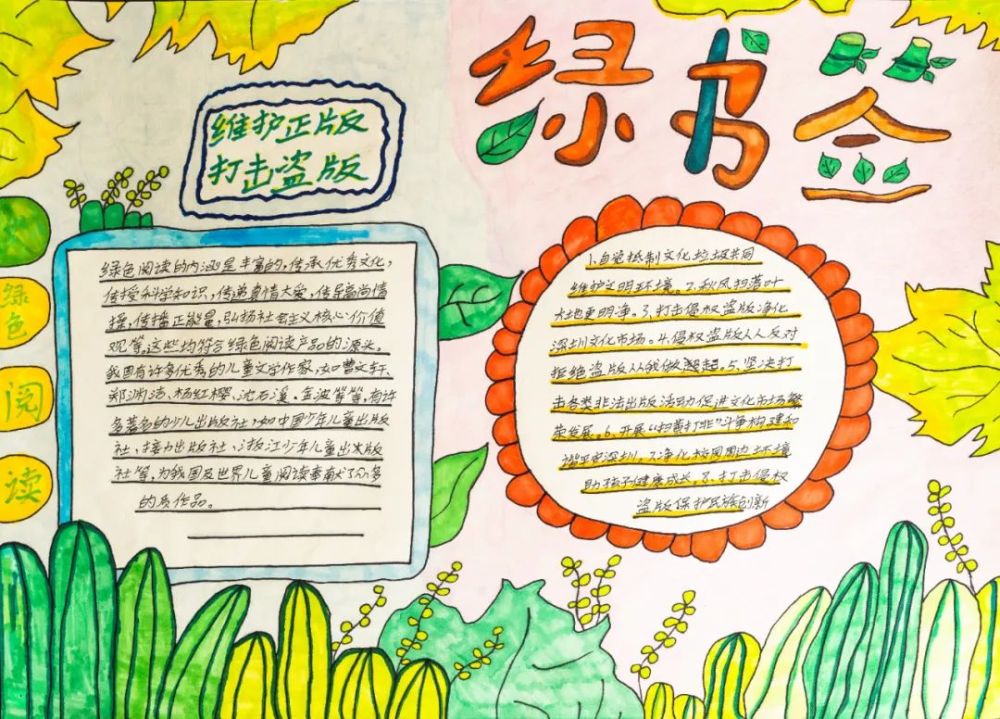 绿书签
维护正版
打击盗版
绿色
阅
读
绿色阅读的内涵是丰富的,传承优秀文化,
传授科学知识,传递真情大爱,传导高尚情
操,传播正能量,弘扬社会主义核心价值
观等,这些均符合绿色阅读产品的源头。
我国有许多优秀的儿童文学作家,如曹文轩、
郑渊洁、杨红樱、沈石溪、金波等等,有许
多著名的少儿出版社,如中国少年儿童出版
社、接力出版社、浙江少年儿童出版
社等,为我国及世界儿童阅读奉献了众多
的质作品。
1.自觉抵制文化垃圾共同
维护文明环境。2.秋风扫落叶
大地更明净。3.打击侵权盗版净化
深圳文化市场。4.侵权盗版人人反对
拒绝盗版从我做起。5.坚决打
击各类非法出版活动促进文化市场繁
荣发展。6.开展“扫黄打非”斗争构建和
谐平安深圳。7.净化校园周边环境
助孩子健康成长。8.打击侵权
盗版保护民族创新